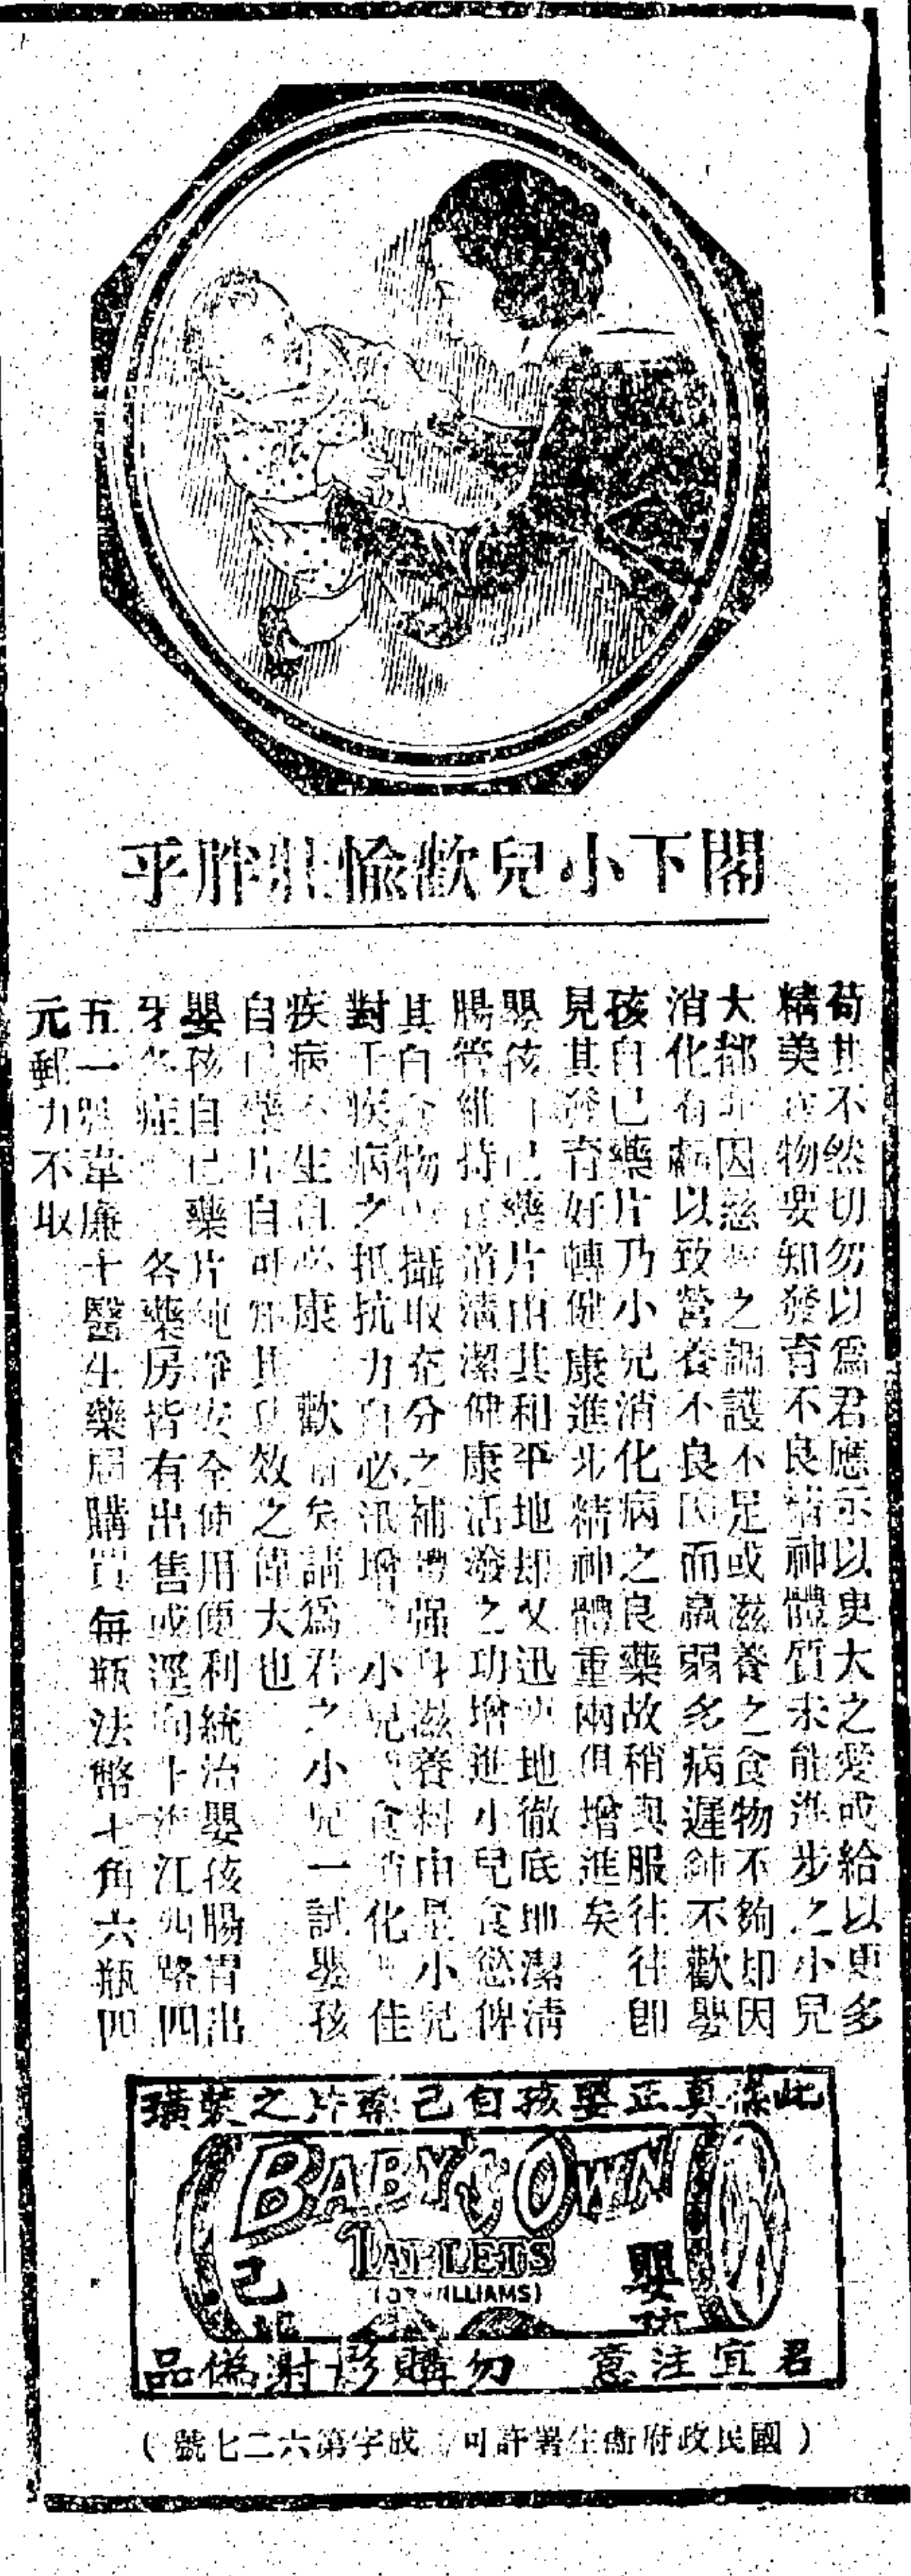 閣下小兒歡愉壯胖乎
苟其不然切勿以爲君應示以更大之愛或給以更多
精美食物要知發育不良精神體質未能進步之小兒
大都非因慈之調護不足或滋養之食物不夠却因
消化有虧以致營養不良因而羸弱多病遲鈍不歡嬰
孩自己藥片乃小兒消化病之良藥故稍與服往往即
見其發育好轉健康進步精神體重兩俱增進矣
嬰孩自己藥片由其和平地却又迅地徹底地潔清
腸管維持清潔健康活潑之功增進小兒食慾俾
其自食物攝取充分之補强身滋養料由是小兒
對于疾病之抵抗力自必汛增小兒食消化佳
疾病不生自必康歡矣請爲君之小兒一試嬰孩
自己藥片自可知其功效之偉大也
嬰孩自己藥片純淨安全使用便利統治嬰孩腸胃出
牙症 各藥房皆有出售或逕向上海江西路四
五一號韋廉士醫生藥局購買每瓶法幣七角六瓶四
元郵力不取
此係真正嬰孩自己藥片之裝璜
BABY'S OWN
TABLETS
(DR WILLIAMS)
嬰孩
自己
君宜注意 勿購影射僞品
(國民政府衞生署許可成字第六二七號)